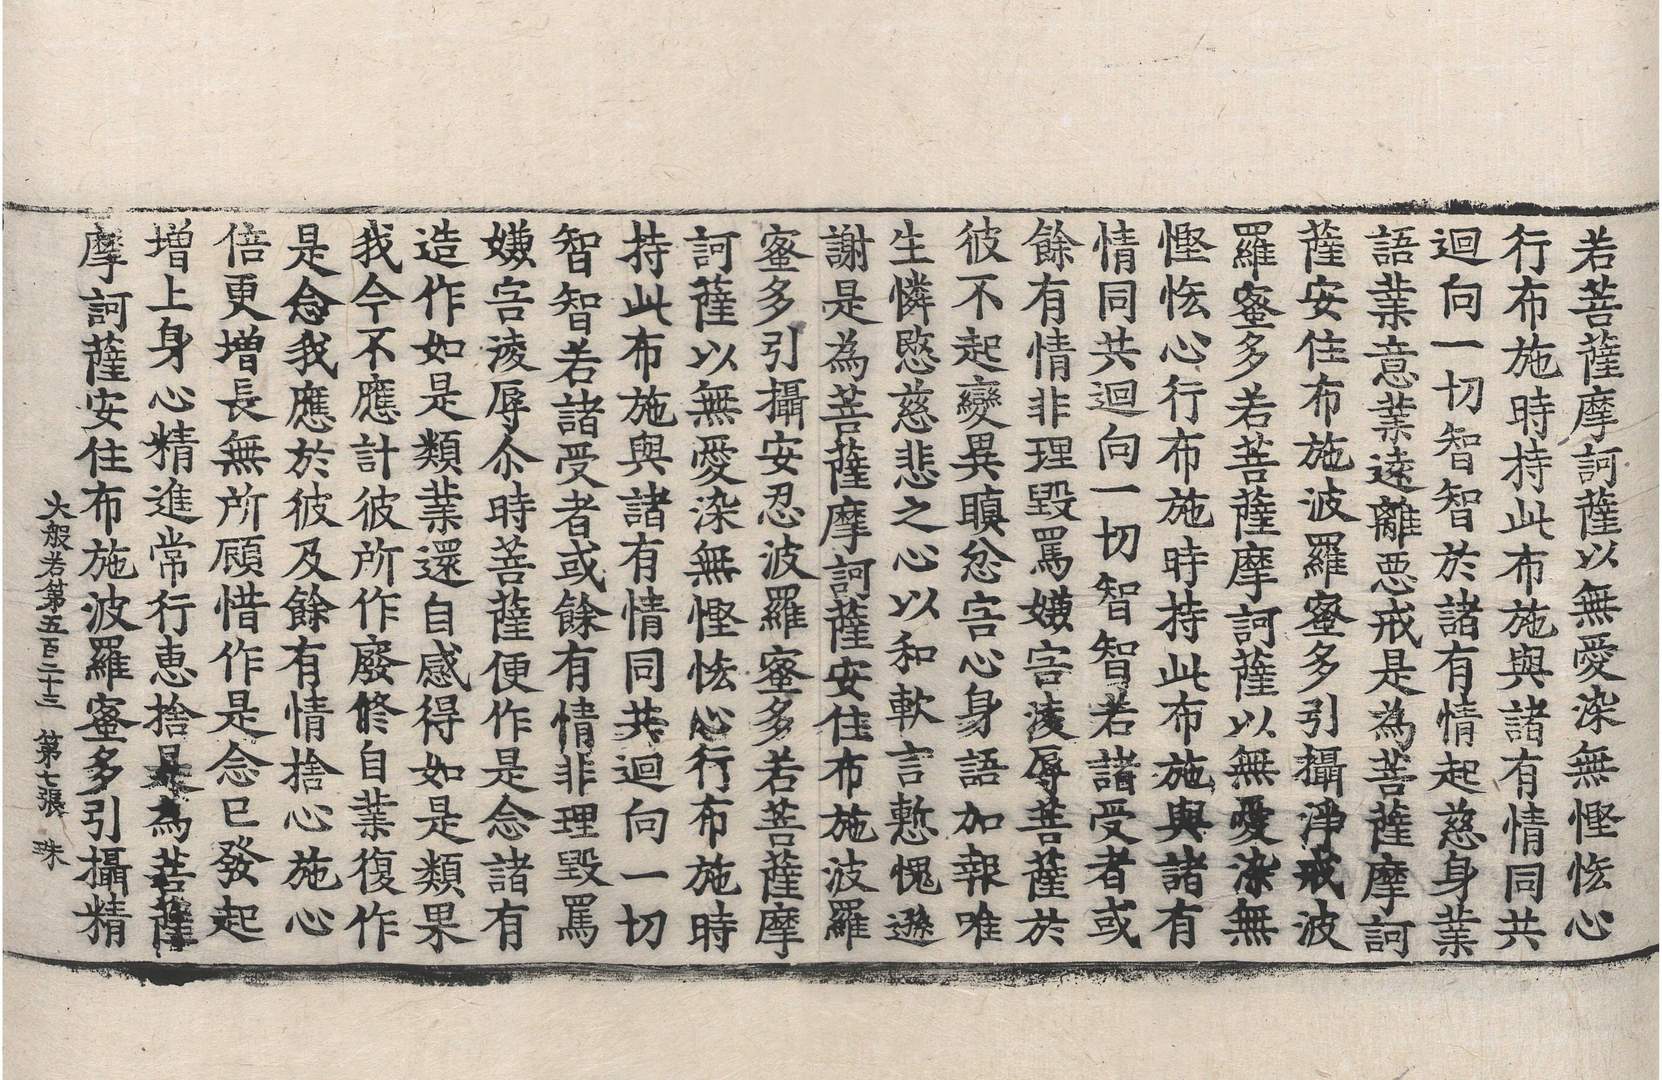 若菩薩摩訶薩以無愛染無慳悋心
行布施時持此布施與諸有情同共
迴向一切智智於諸有情起慈身業
語業意業遠離惡戒是為菩薩摩訶
薩安住布施波羅蜜多引攝淨戒波
羅蜜多若菩薩摩訶薩以無愛染無
慳悋心行布施時持此布施與諸有
情同共迴向一切智智若諸受者或
餘有情非理毀罵嫌害淩辱菩薩於
彼不起變異瞋忿害心身語加報唯
生憐愍慈悲之心以和軟言慙愧遜
謝是為菩薩摩訶薩安住布施波羅
蜜多引攝安忍波羅蜜多若菩薩摩
訶薩以無愛染無慳悋心行布施時
持此布施與諸有情同共迴向一切
智智若諸受者或餘有情非理毀罵
嫌害淩辱尒時菩薩便作是念諸有
造作如是類業還自感得如是類果
我今不應計彼所作廢修自業復作
是念我應於彼及餘有情捨心施心
倍更增長無所顧惜作是念已發起
增上身心精進常行惠捨是為菩薩
摩訶薩安住布施波羅蜜多引攝精
大般若第五百二十三 第七張 珠